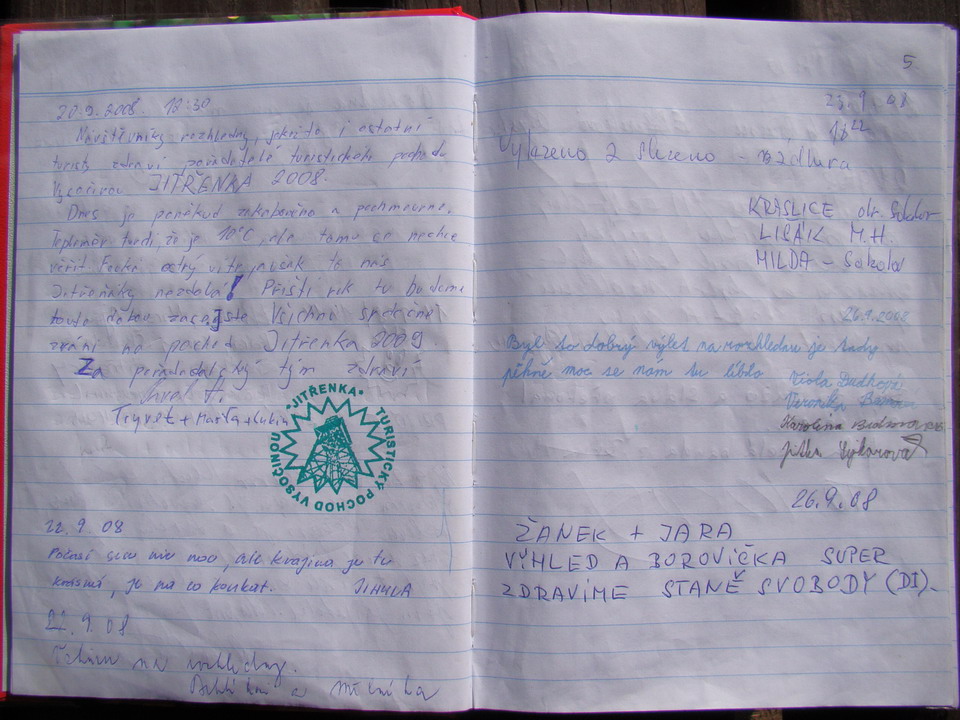 20.9.2008 12:30
Návštěvníky rozhledny, jakož to i ostatní
turisty zdraví pořadatelé turistického pochodu
Vysočinou JITŘENKA 2008.
Dnes je poněkud zakaboněno a pochmourno.
Teploměr tvrdí, že je 10°C, ale tomu se nechce
věřit. Fouká ostrý vítr, avšak to nás
Jitřeňáky nezdolá! Příští rok tu budeme
touto dobou zase. Jste všichni srdečně
zváni na pochod Jitřenka 2009.
Za pořadatelský tým zdraví
Tryvet + Marťa + Lukin
*JITŘENKA* TURISTICKÝ POCHOD VYSOČINOU
22.9.08
Počasí sice nic moc, ale krajina je tu
krásná, je na co koukat. JIHULA
22.9.08
na rozhledny.
a
5
23.9.08
16 22
Vylezeno 2 slezeno -
KRASLICE otr. Sokolov
LIŠÁK M.H.
MILDA - Sokolov
26.9.2008
Byl to dobrý výlet na rozhlednu je tady
pěkně moc se nam tu líbilo Viola Dudková
Veronika
Karolína
Jitka Sýkorová
26.9.08
ŽANEK + JARA
VÝHLED A BOROVIČKA SUPER
ZDRAVIME STANĚ SVOBODY (DI).